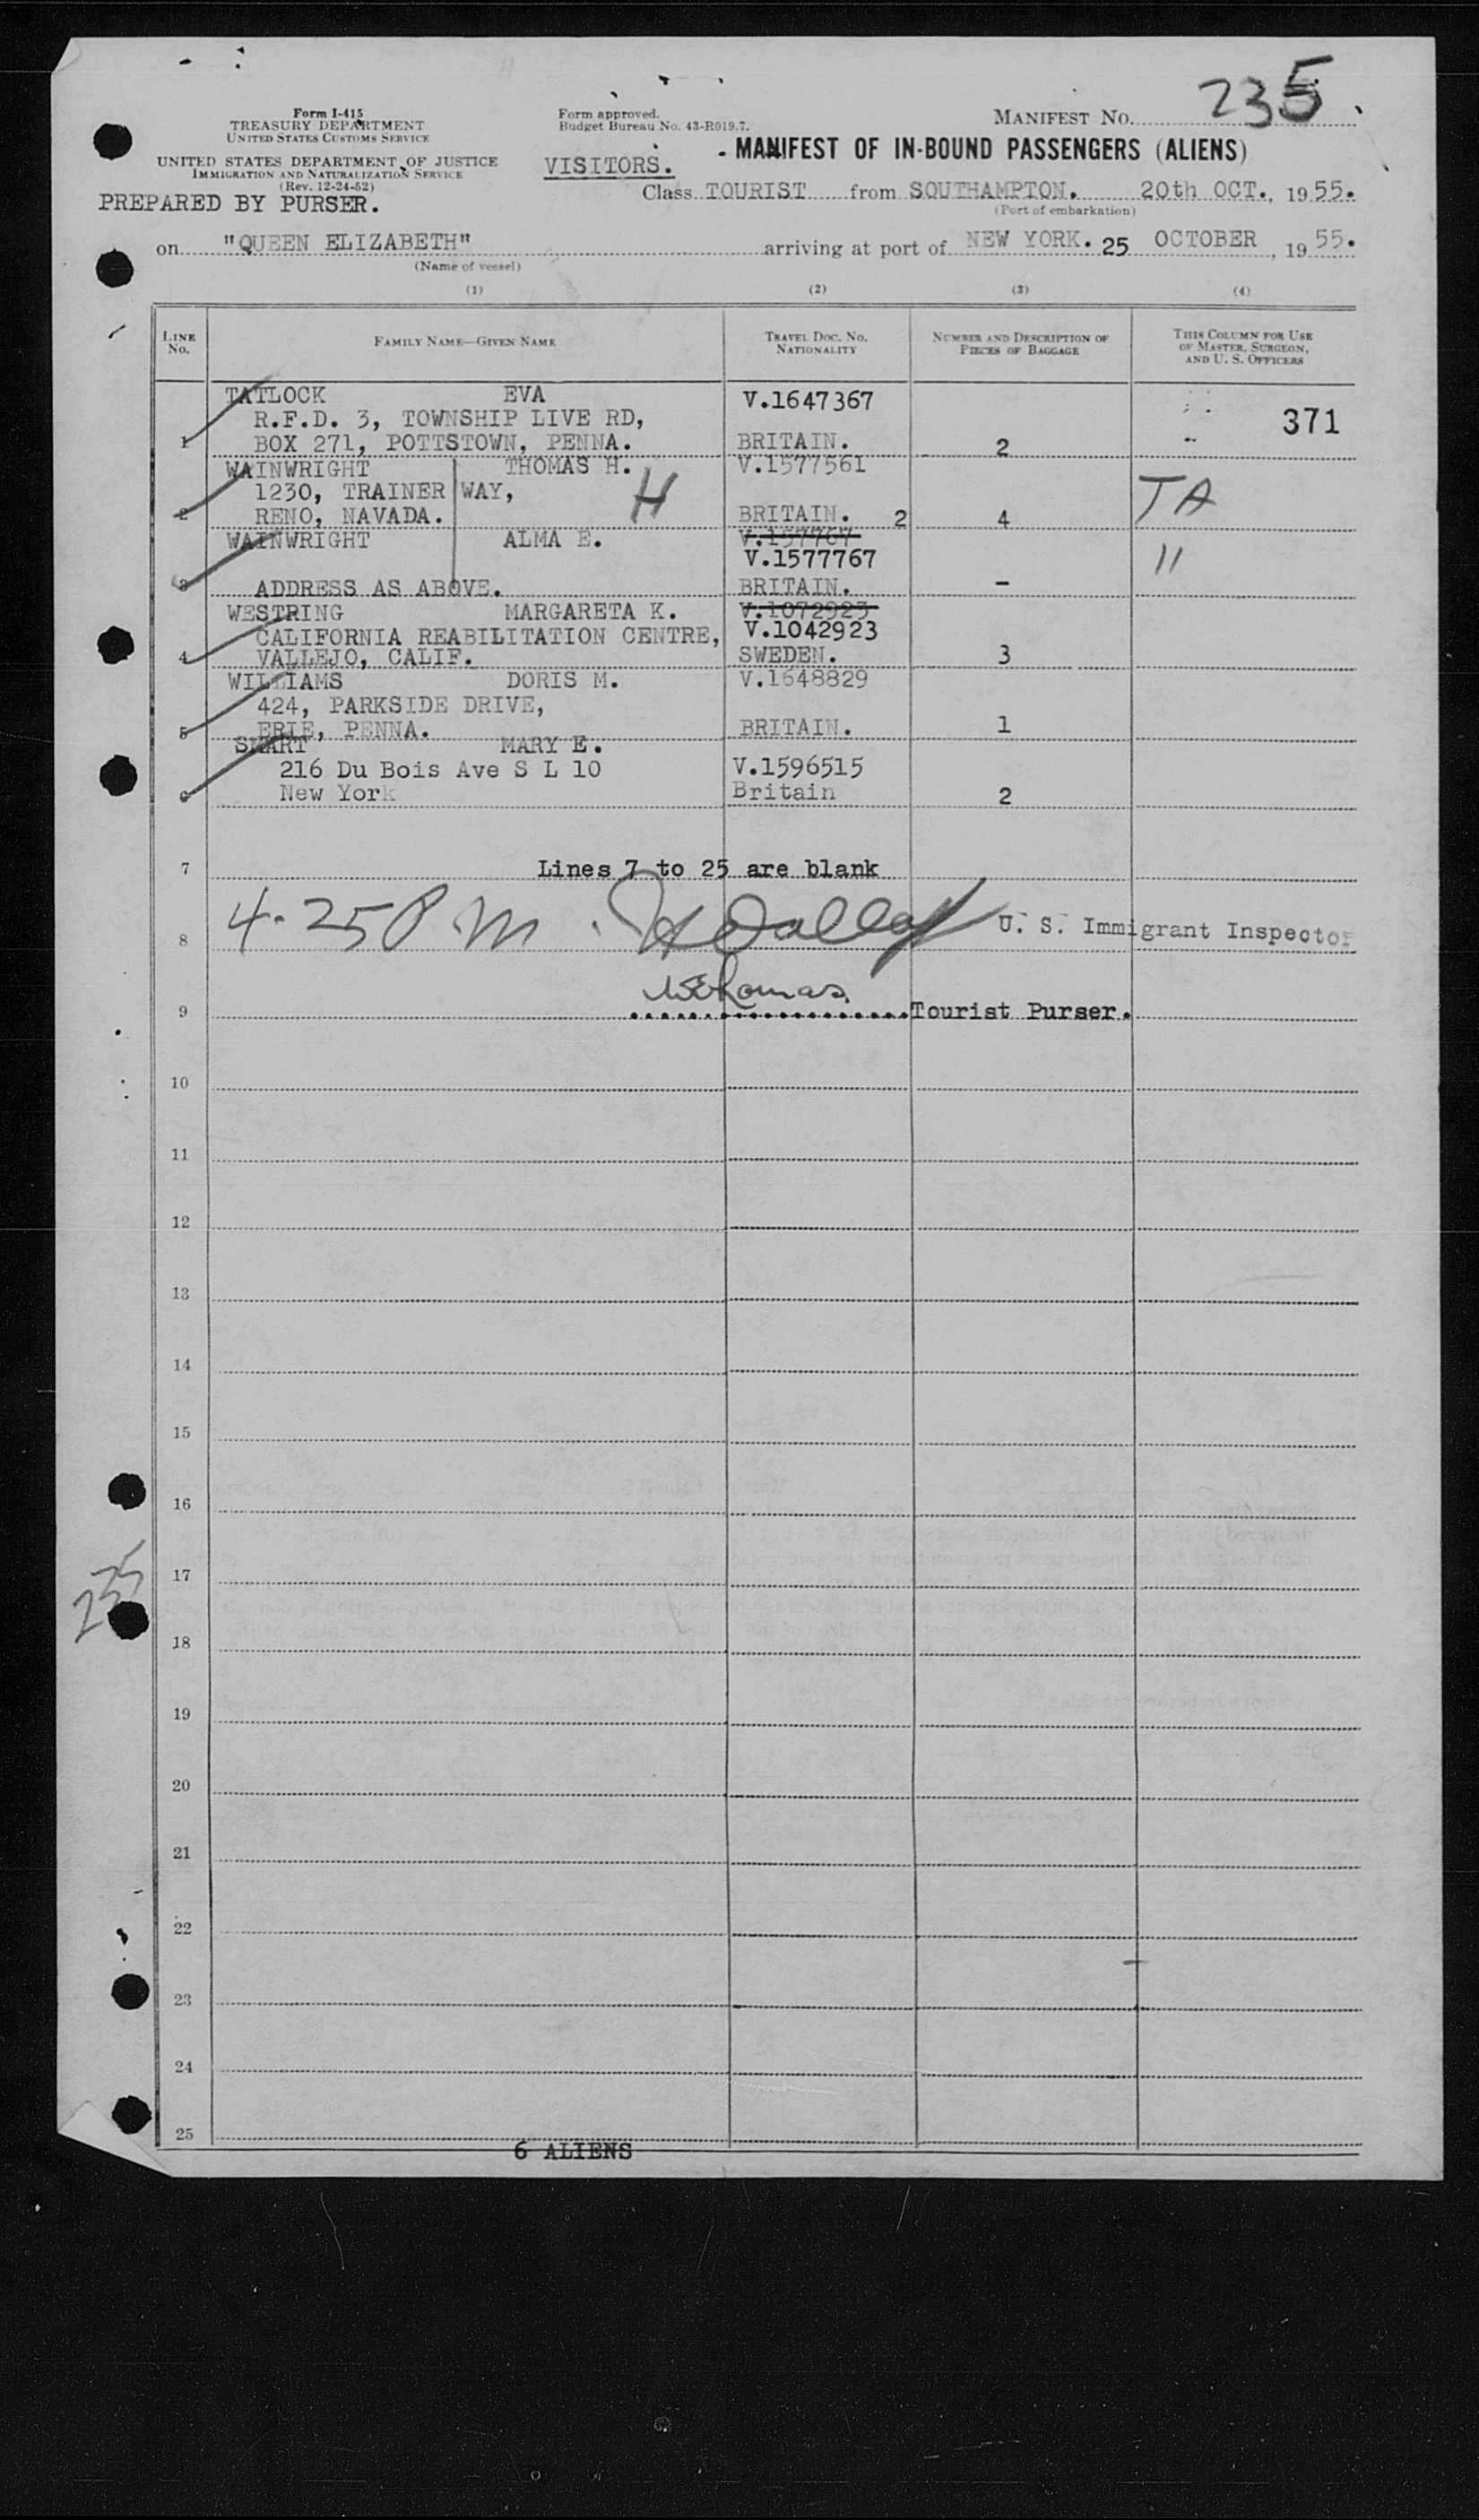 235
Form I-415
TREASURY DEPARTMENT
UNITED STATES CUSTOMS SERVICE
UNITED STATES DEPARTMENT OF JUSTICE
IMMIGRATION AND NATURALIZATION SERVICE
(Rev. 12-24-52)
PREPARED BY PURSER.
Form approved.
Budget Bureau No. 43-R019.7.
MANIFEST No.
VISITORS.
MANIFEST OF IN-BOUND PASSENGERS (ALIENS)
Class TOURIST from SOUTHAMPTON. 20th OCT., 1955.
(Port of embarkation)
on "QUEEN ELIZABETH" arriving at port of NEW YORK. 25 OCTOBER, 1955.
(Name of vessel)
(1) (2) (3) (4)
LINE No. FAMILY NAME—GIVEN NAME TRAVEL DOC. NO. NATIONALITY NUMBER AND DESCRIPTION OF PIECES OF BAGGAGE THIS COLUMN FOR USE OF MASTER, SURGEON, AND U. S. OFFICERS
TATLOCK EVA V.1647367
R.F.D. 3, TOWNSHIP LIVE RD, 371
1 BOX 271, POTTSTOWN, PENNA. BRITAIN. 2
WAINWRIGHT THOMAS H. V.1577561
1230, TRAINER WAY, H TA
2 RENO, NAVADA. BRITAIN. 2 4
WAINWRIGHT ALMA E. V.157767
V.1577767 11
3 ADDRESS AS ABOVE. BRITAIN. -
WESTRING MARGARETA K. V.1072923
CALIFORNIA REABILITATION CENTRE, V.1042923
4 VALLEJO, CALIF. SWEDEN. 3
WILLIAMS DORIS M. V.1648829
424, PARKSIDE DRIVE,
5 ERIE, PENNA. BRITAIN. 1
SMART MARY E.
216 Du Bois Ave S L 10 V.1596515
6 New York Britain 2
7 Lines 7 to 25 are blank
8 4-25 P.M. U. S. Immigrant Inspector
9 Tourist Purser.
10
11
12
13
14
15
16
17
235
18
19
20
21
22
23
24
25
6 ALIENS